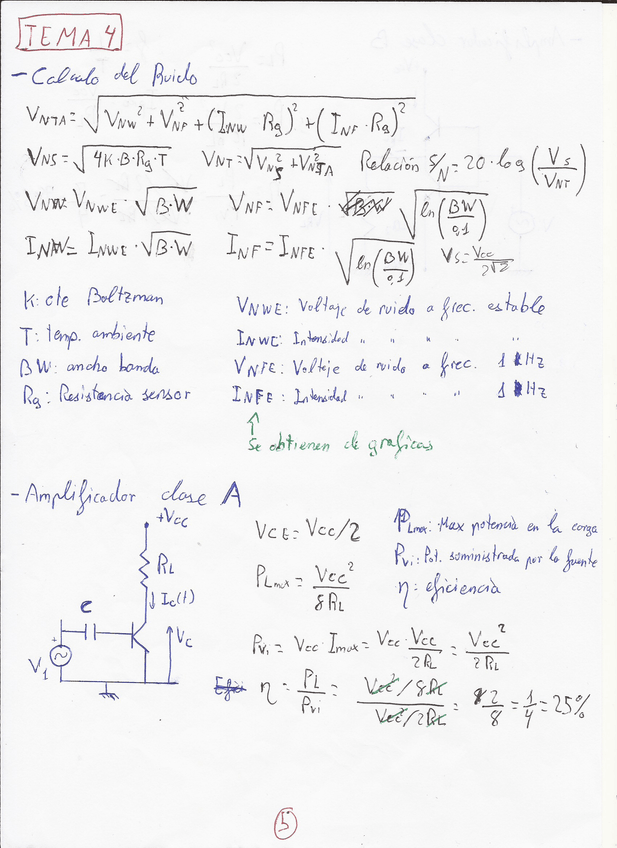 TEMA 4
- Calculo del Ruido
V_NTA = √(V_NW² + V_NF² + (I_NW · Rg)² + (I_NF · Rg)²)
V_NS = √(4K·B·Rg·T) V_NT = √(V_NS² + V_NTA²) Relación S/N = 20·log(V_S/V_NT)
V_NW = V_NWE · √(B·W) V_NF = V_NFE · √(ln(BW/0,1))
I_NW = I_NWE · √(B·W) I_NF = I_NFE · √(ln(BW/0,1)) V_S = Vcc/2√2
K: cte Boltzman V_NWE: Voltaje de ruido a frec. estable
T: temp. ambiente I_NWE: Intensidad " " " "
BW: ancho banda V_NFE: Voltaje de ruido a frec. 1 Hz
Rg: Resistencia sensor I_NFE: Intensidad " " " " 1 Hz
↑
Se obtienen de graficas
- Amplificador clase A
+Vcc
R_L
Ic(t)
C
Vc
+
V1
V_CE = Vcc/2
P_Lmax = Vcc²/8R_L
P_Lmax: Max potencia en la carga
P_vi: Pot. suministrada por la fuente
η: eficiencia
P_vi = Vcc · Imax = Vcc · Vcc/2R_L = Vcc²/2R_L
η = P_L/P_vi = (Vcc²/8R_L)/(Vcc²/2R_L) = 2/8 = 1/4 = 25%
5